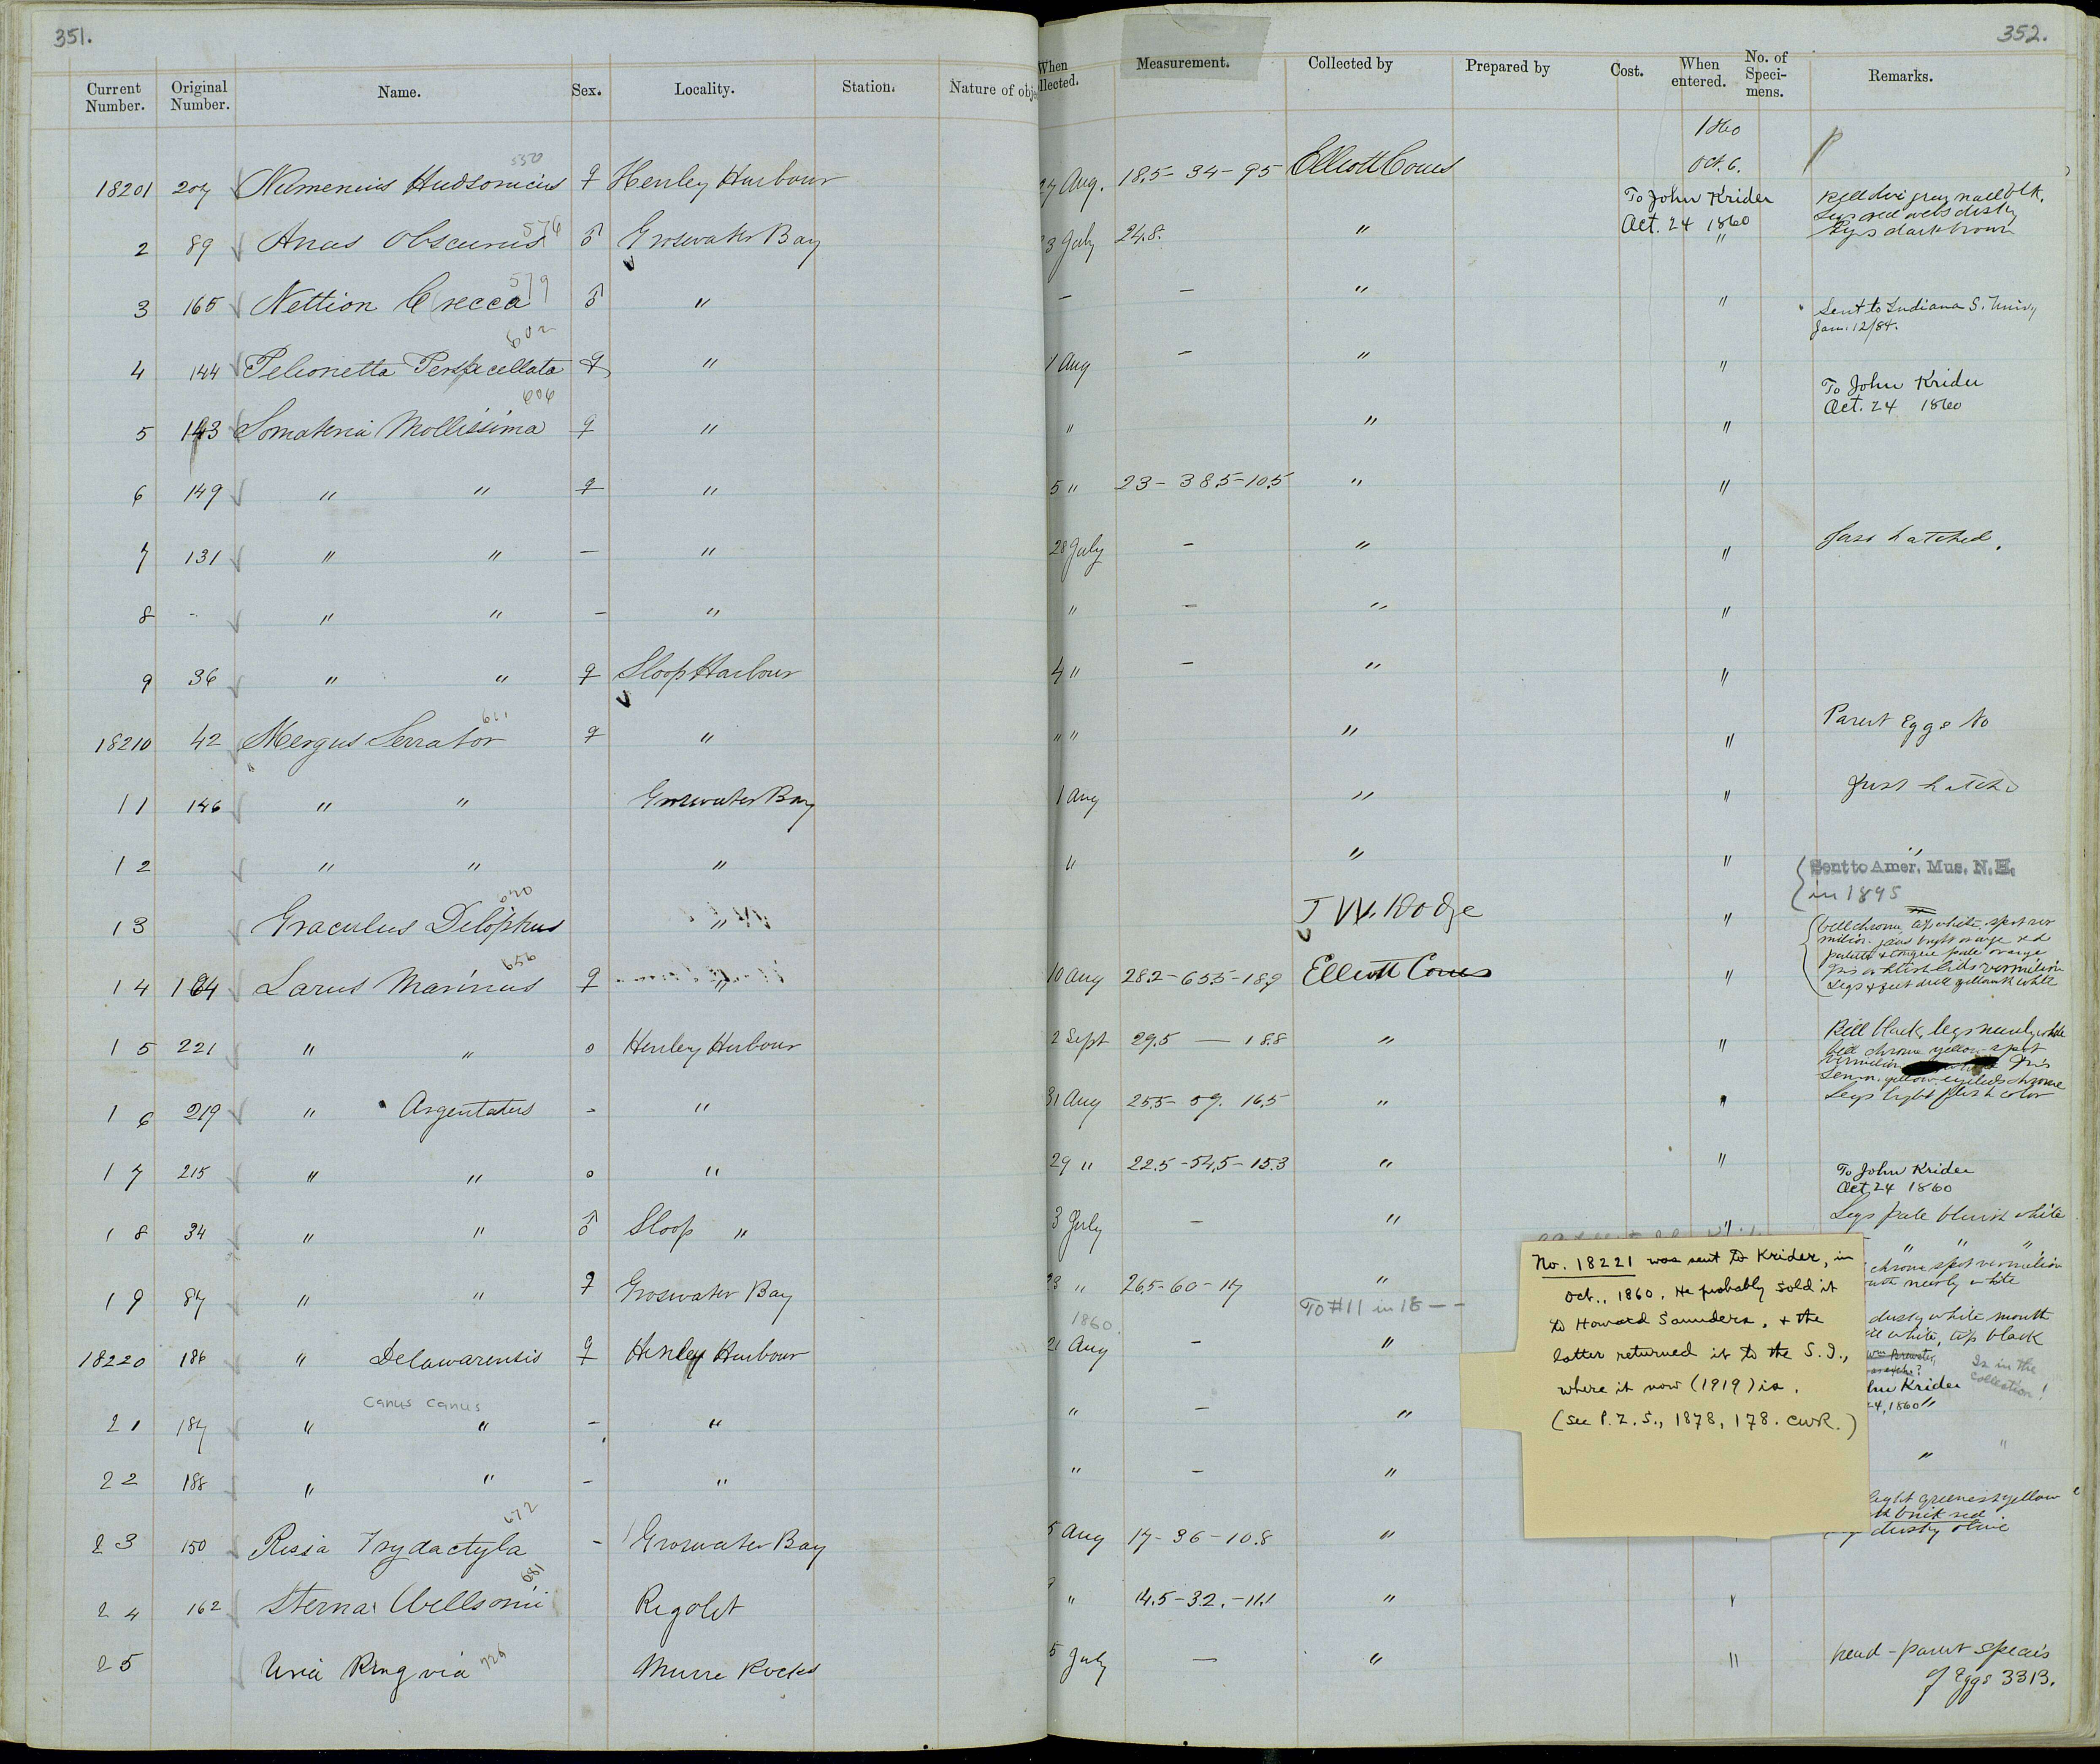 351.
352.
Current Number. Original Number. Name. Sex. Locality. Station. Nature of obje
When llected. Measurement. Collected by Prepared by Cost. When entered. No. of Speci-mens. Remarks.
1860
18201 207 Numenius Hudsonicus ♀ Henley Harbour 27 Aug. 18.5 - 34 - 95 Elliott Coues Oct. 6.
To John Krider
Oct. 24 1860
2 89 Anas Obscurus 576 ♂ Groswater Bay 3 July 24.8. " "
Legs red webs dusky
Eyes dark brown
3 165 Nettion Crecca 579 ♂ " — — " "
Sent to Indiana S. Univ,
Jan. 12/84.
4 144 Pelionetta Perspicellata 602 ♀ " 1 Aug — " "
To John Krider
Oct. 24 1860
5 143 Somateria Mollissima 606 ♀ " " " "
6 149 " " ♀ " 5 " 23 - 38.5 - 10.5 " "
7 131 " " — " 28 July — " " Just hatched.
8 - " " — " " — " "
9 36 " " ♀ Sloop Harbour 4 " — " "
18210 42 Mergus Serrator 611 ♀ " " " " " Parent Eggs No
11 146 " " Groswater Bay 1 Aug " " Just hatchd
12 " " " " " " "
Sent to Amer. Mus. N.H.
in 1895
13 Graculus Dilophus 620 " J W. Dodge "
14 Larus Marinus 656 ♀ " 10 Aug 28.2 - 65.5 - 18.9 Elliott Coues "
bill chrome, tip white, spot ver
milion. jaws bright orange red
palate & tongue pale orange
lids vermilion
Legs & feet dull yellowish white
15 221 " " o Henley Harbour 2 Sept 29.5 — 18.8 " "
Bill black, legs nearly white
16 219 " Argentatus - " 31 Aug 25.5 - 59. 16.5 " "
bill chrome yellow spot
vermilion Iris
Lemon yellow eyelids chrome
Legs light flesh color
17 215 " " o " 29 " 22.5 - 54.5 - 15.3 " "
To John Krider
Oct 24 1860
18 34 " " ♂ Sloop " 3 July — " " Legs pale bluish white
19 87 " " ♀ Groswater Bay 23 " 26.5 - 60 - 17 "
" " "
chrome spot vermilion
nearly white
To #11 in 18 - -
1860.
18220 186 " Delawarensis ♀ Henley Harbour 21 Aug — "
dusky white mouth
white, tip black
Is in the
collection!
Canus canus
21 187 " " - " " — "
Krider
24, 1860 "
22 188 " " - " " — " " "
23 150 Rissa Trydactyla 672 - Groswater Bay 5 Aug 17 - 36 - 10.8 "
light greenish yellow
brick red
dusky olive
24 162 Sterna Willsonii 681 Rigolet " 14.5 - 32. - 11.1 " "
25 Uria Ringvia 729 Murre Rocks 5 July — " "
head - parent specis
of Eggs 3313.
No. 18221 was sent to Krider, in
Oct., 1860. He probably sold it
to Howard Saunders, & the
latter returned it to the S.I.,
where it now (1919) is.
(See P.Z.S., 1878, 178. CWR.)